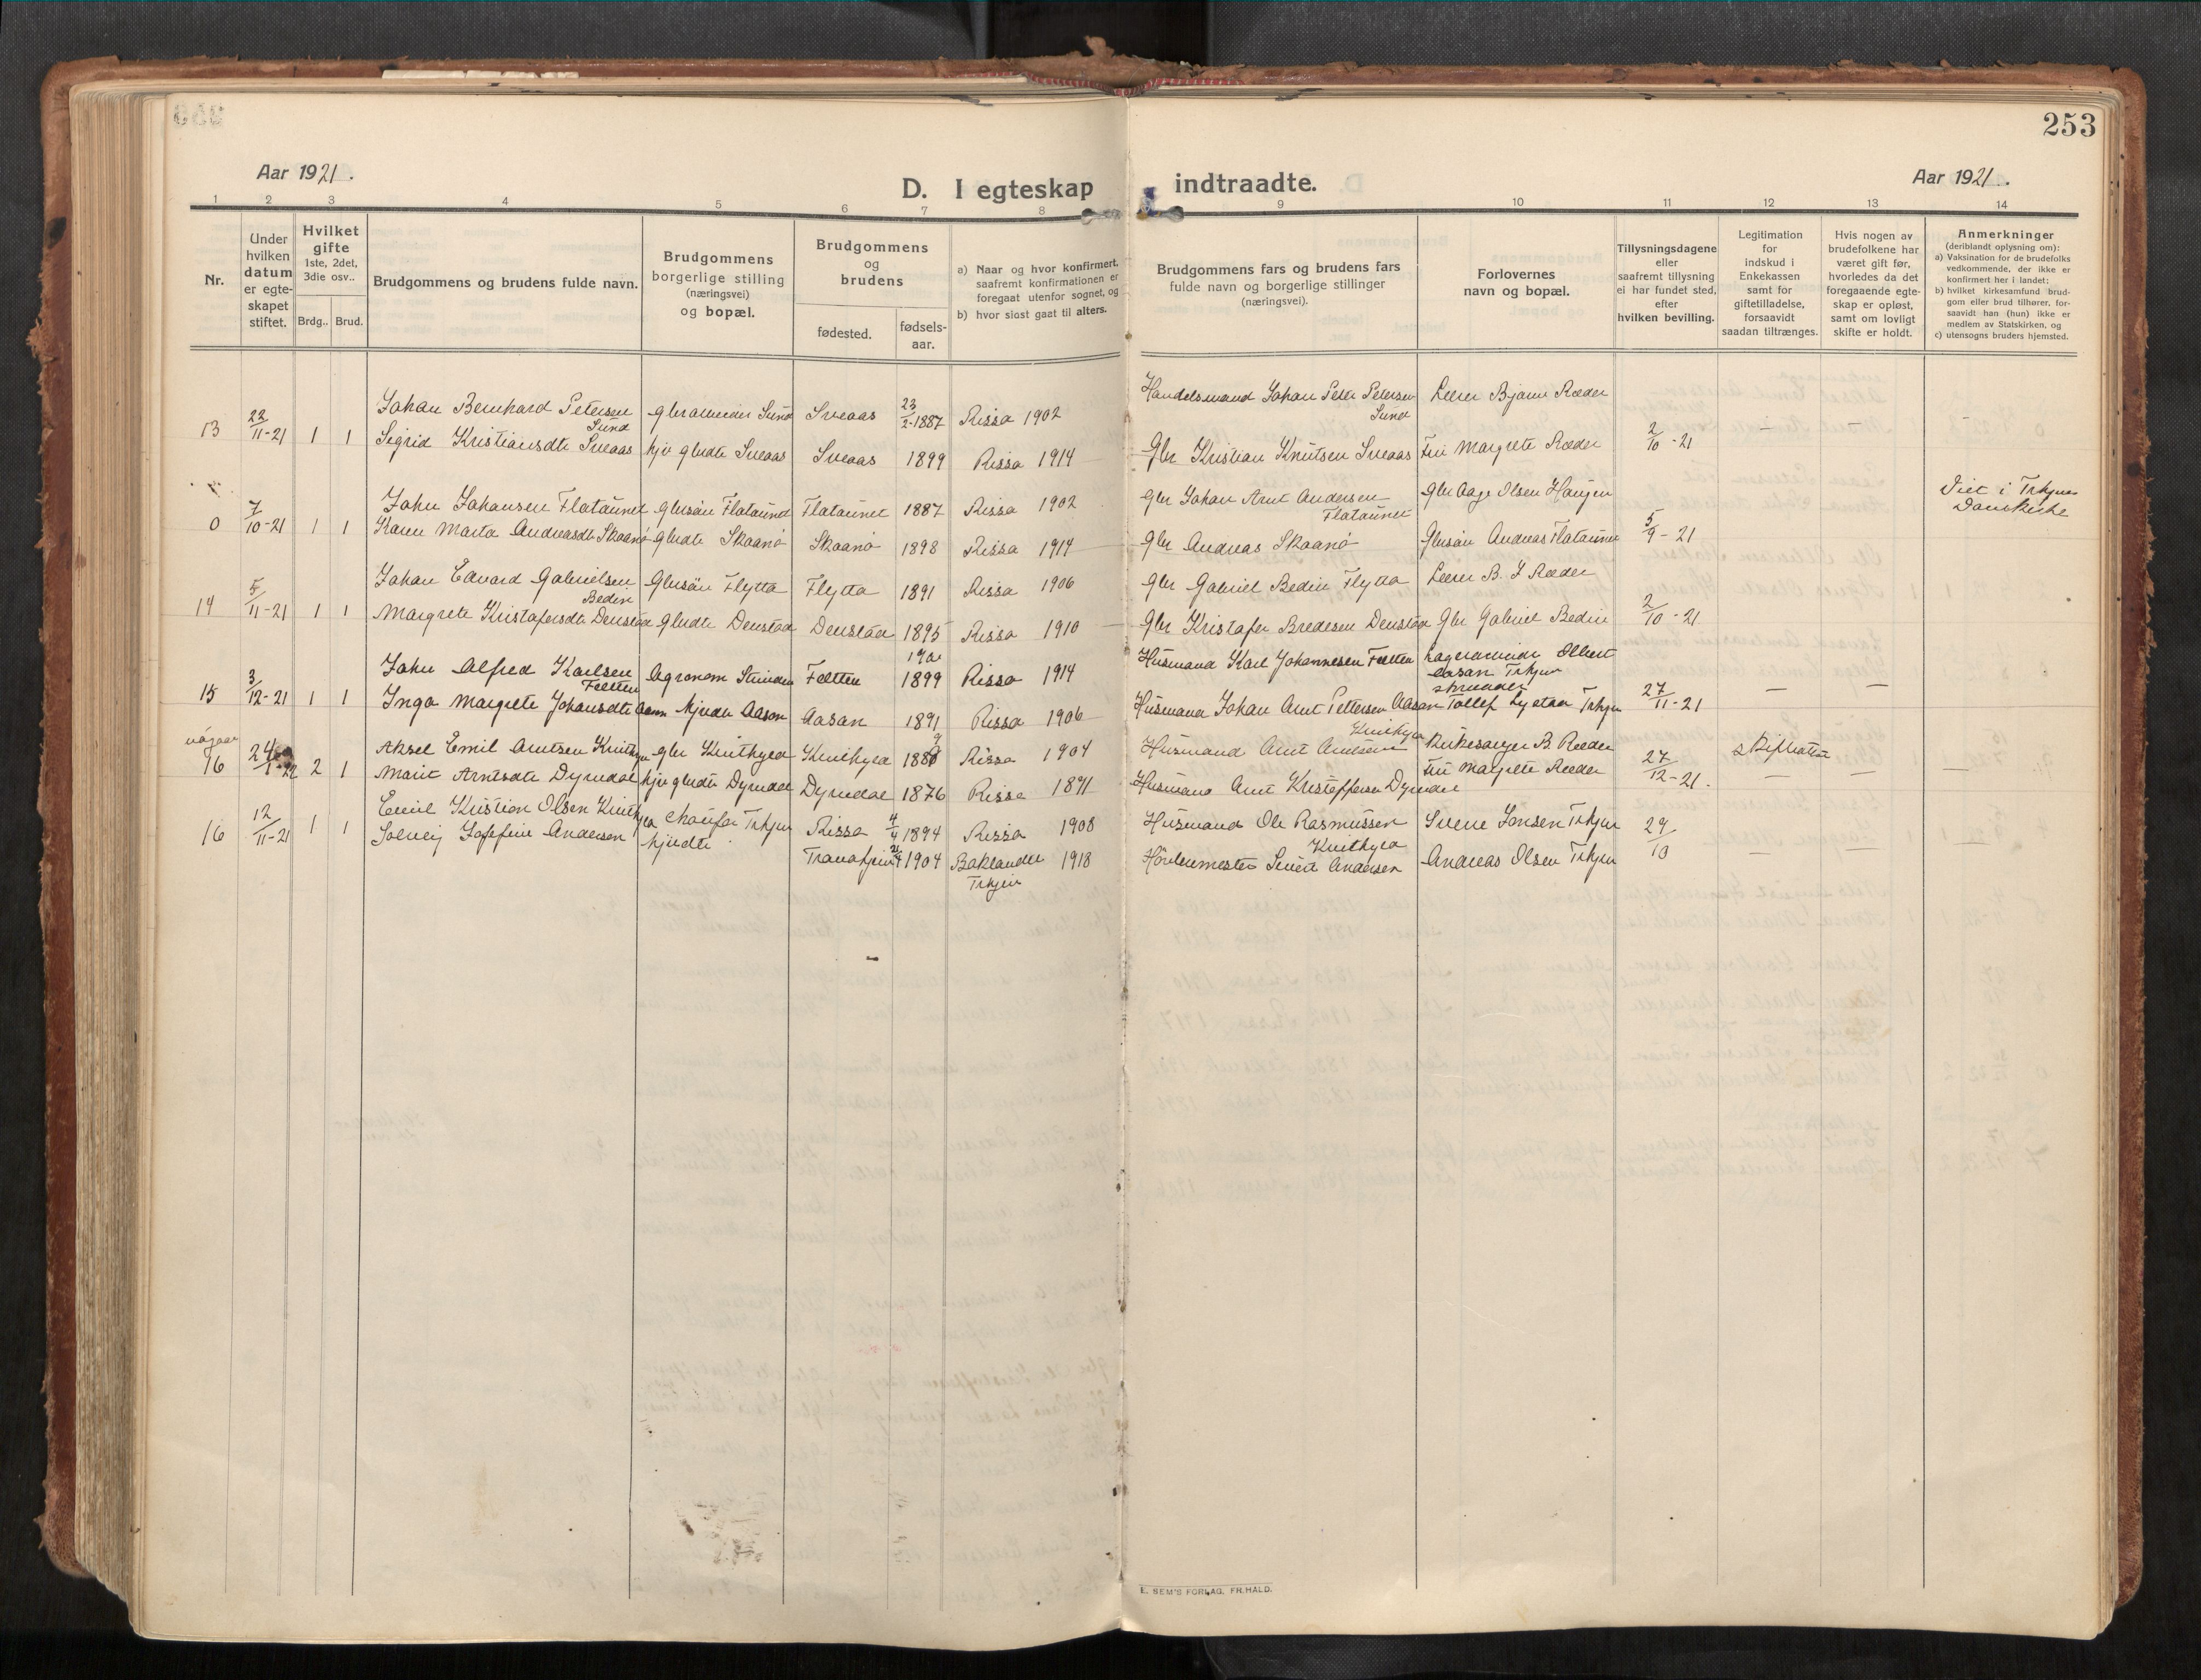 253
Aar 1921.
D. I egteskap indtraadte.
Aar 1921.
1 2 3 4 5 6 7 8 9 10 11 12 13 14
Nr.
Under hvilken datum er egteskapet stiftet.
Hvilket gifte 1ste, 2det, 3die osv..
Brdg.. Brud.
Brudgommens og brudens fulde navn.
Brudgommens borgerlige stilling (næringsvei) og bopæl.
Brudgommens og brudens
fødested.
fødsels-aar.
a) Naar og hvor konfirmert. saafremt konfirmationen er foregaat utenfor sognet, og
b) hvor sidst gaat til alters.
Brudgommens fars og brudens fars fulde navn og borgerlige stillinger (næringsvei).
Forlovernes navn og bopæl.
Tillysningsdagene eller saafremt tillysning ei har fundet sted, efter hvilken bevilling.
Legitimation for indskud i Enkekassen samt for giftetilladelse, forsaavidt saadan tiltrænges.
Hvis nogen av brudefolkene har været gift før, hvorledes da det foregaaende egteskap er opløst, samt om lovligt skifte er holdt.
Anmerkninger
(deriblandt oplysning om):
a) Vaksination for de brudefolks vedkommende, der ikke er konfirmert her i landet;
b) hvilket kirkesamfund brudgom eller brud tilhører, forsaavidt han (hun) ikke er medlem av Statskirken, og
c) utensogns bruders hjemsted.
Johan Bernhard Petersen Sund gbrarbeider Sund Sveaas 23/2-1887 Rissa 1902 Handelsmand Johan Peter Petersen Sund Lærer Bjarne Ræder
13 22/11-21 1 1 Sigrid Kristiansdtr Sveaas hjv gbrdtr Sveaas Sveaas 1899 Rissa 1914 Gbr Kristian Knutsen Sveaas Fru Margrete Ræder 2/10-21 — —
John Johansen Flataunet gbrsøn Flataunet Flataunet 1887 Rissa 1902 gbr Johan Arnt Andersen Flataunet Gbr Aage Olsen Haugen Viet i Trhjems Domkirke
0 7/10-21 1 1 Karen Marta Andreasdtr Skaanø gbrdtr Skaanø Skaanø 1898 Rissa 1914 gbr Andreas Skaanø Gbrsøn Andreas Flataunet 5/9-21
Johan Edvard Gabrielsen Bedin Gbrsøn Flytta Flytta 1891 Rissa 1906 gbr Gabriel Bedin Flytta Lærer B. J Ræder
14 5/11-21 1 1 Margrete Kristofersdtr Denstad gbrdtr Denstad Denstad 1895 Rissa 1910 Gbr Kristofer Bredesen Denstad Gbr Gabriel Bedin 2/10-21
John Alfred Karlsen Feltten Agronom Feltten 1899 Rissa 1914 Husmand Karl Johannesen Feltten Lagerarbeider Olbert Aasan Trhjem
15 3/12-21 1 1 Inga Margrete Johansdtr Aasan hjvdtr Aasan Aasan 1891 Rissa 1906 Husmand Johan Arnt Pettersen Aasan Skrædder Tollef Trhjem 27/11-21 — —
Aksel Emil Arntsen Kvithyld gbr Kvithyld Kvithyld 1889 Rissa 1904 Husmand Arnt Kvithyld Kirkesanger B. Ræder
utgaar 16 24/1-22 2 1 Marit Arntsdtr Dyrndal hjv gbrdtr Dyrndal Dyrndal 1876 Rissa 1891 Husmand Arnt Kristoffersen Dyrndal Fru Margrete Ræder 27/12-21. Skifteattest — —
Emil Kristian Olsen Kvithyld Chaufør Trhjem Rissa 4/4 1894 Rissa 1908 Husmand Ole Rasmussen Kvithyld Sverre Jensen Trhjem
16 12/11-21 1 1 Solveig Josefine Andersen hjvdtr 1904 Baklandet Trhjem 1918 Sivert Andersen Andreas Olsen Trhjem 29/10 — —
E. SEM'S FORLAG, FR.HALD.